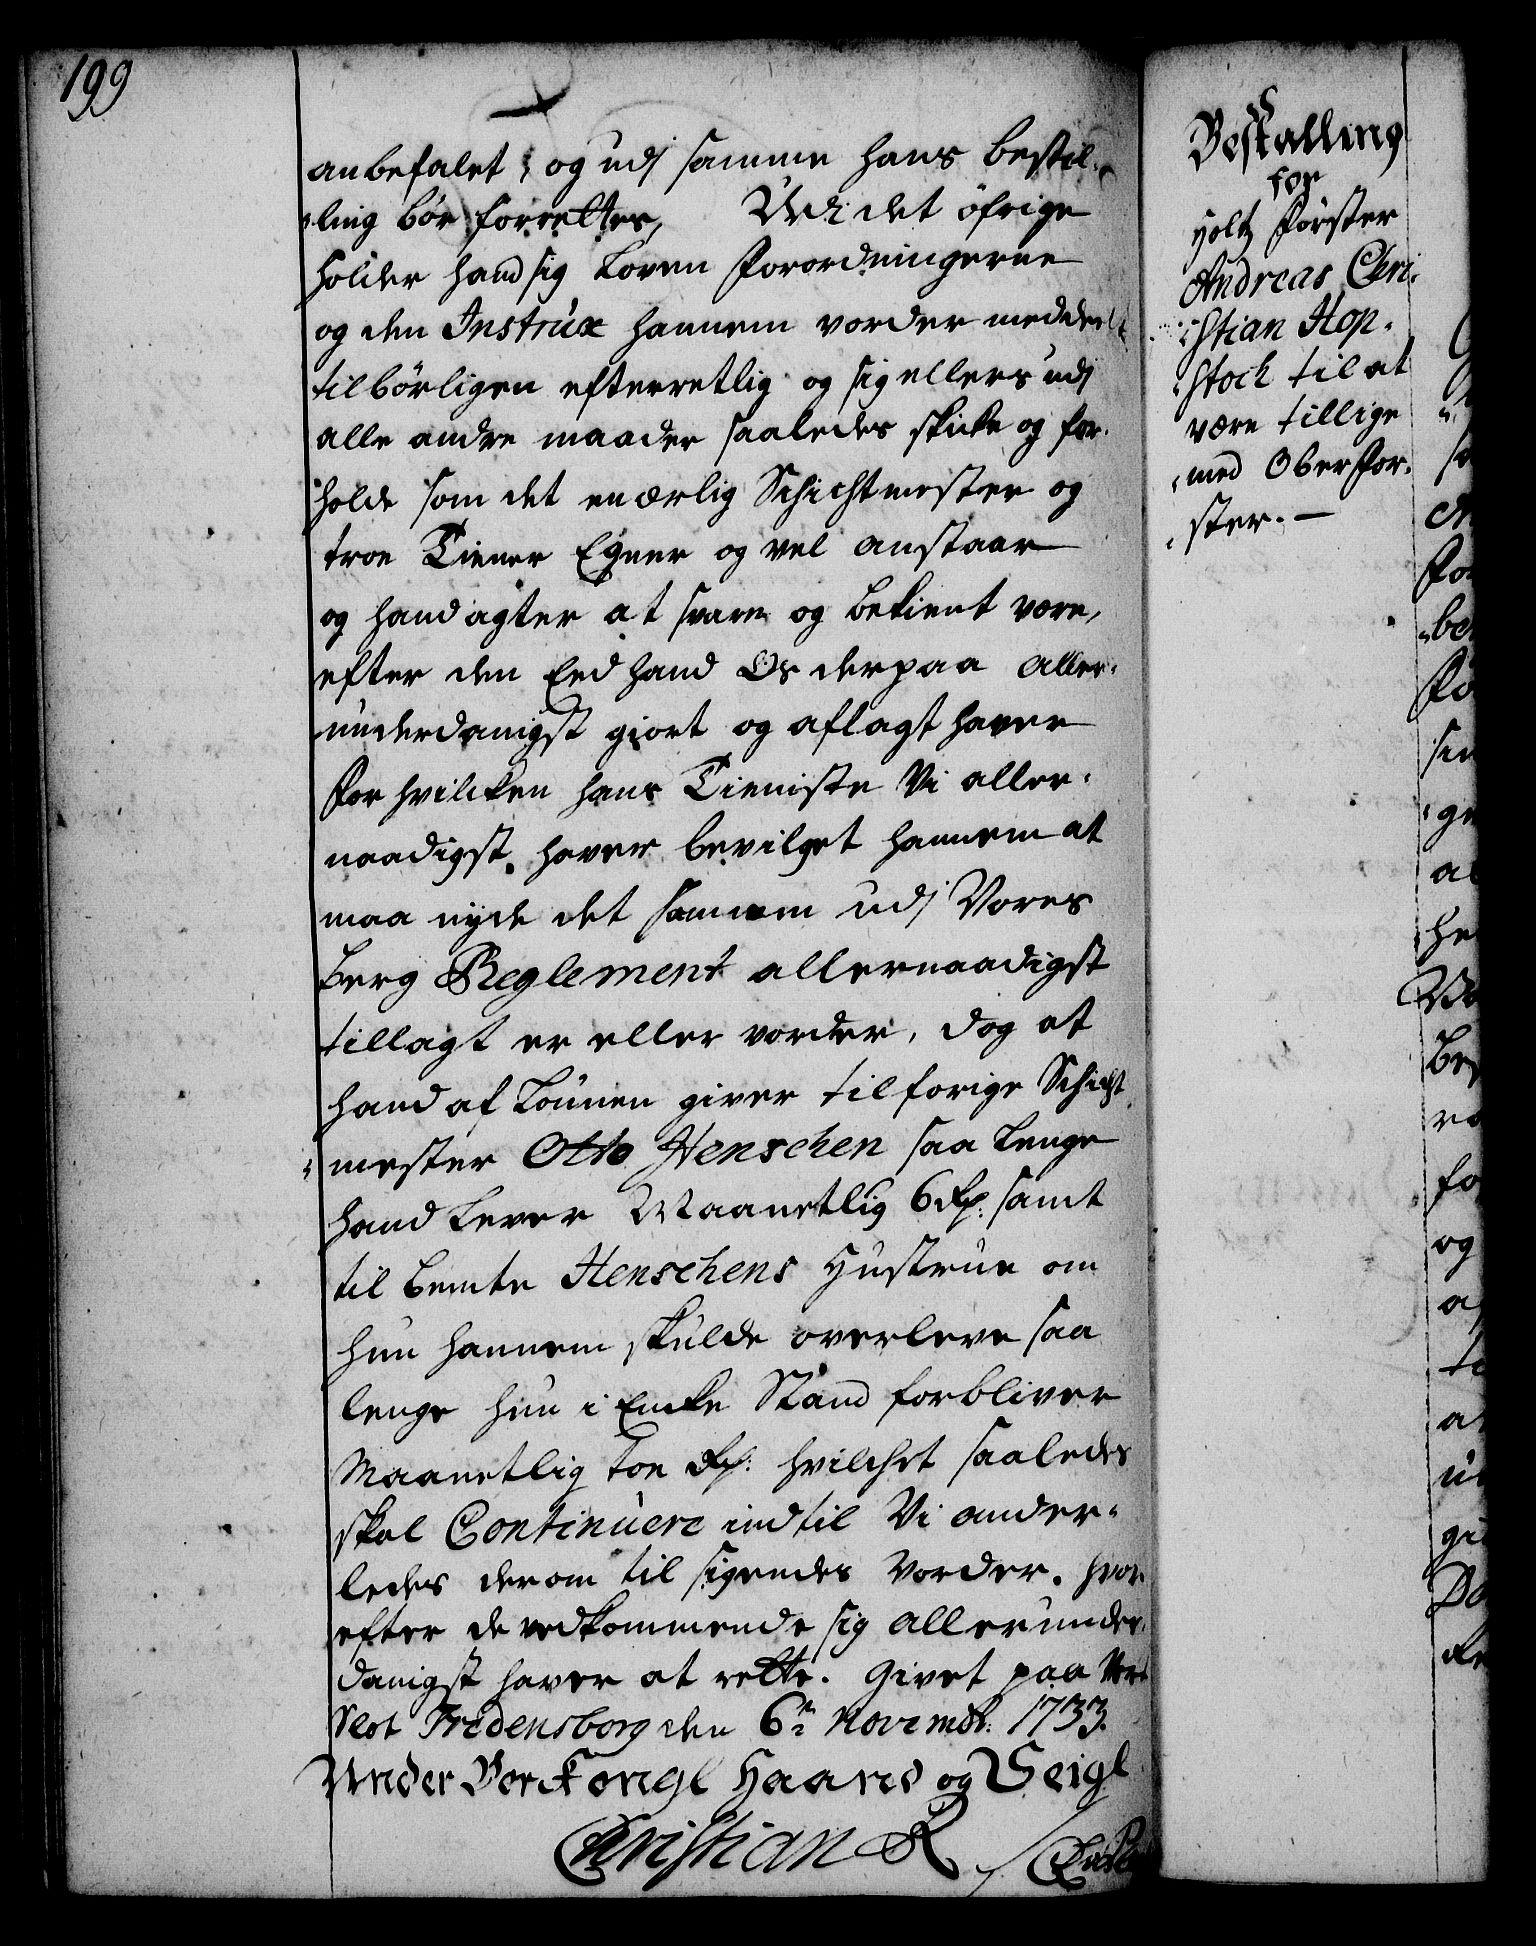 199
anbefalet, og udj samme hans bestil-
ling bør forrettes, Udi det øfrige
holder hand sig Loven Forordningerne
og den Instrux hannem vorder meddeelt
tilbørligen efterretlig og sig ellers udj
alle andre maader saaledes skicke og for-
holde som det en ærlig Schichtmester og
troe Tiener Egner og vel anstaar
og hand agter at svare og bekient være,
efter den Eed hand Os derpaa aller-
underdanigst giort og aflagt haver
For hvilcken hans Tieniste Vi aller-
naadigst haver bevilget hannem at
maa nyde det samme udj Vores
Berg Reglement allernaadigst
tillagt er eller vorder, dog at
hand af Lønnen giver til forige Schicht
mester Otto Henschen saa lenge
hand Lever Maanetlig 6 Rd: samt
til bemte Henschens Hustrue om
hun hannem skulde overleve saa
lenge hun i Encke Stand forbliver
Maanetlig toe Rd: hvilchet saaledes
skal Continuere indtil Vi ander-
ledes derom til sigendes vorder. hvor
efter de vedkommende sig allerunder-
danigst haver at rette. Givet paa Vort
Slot Fredensborg den 6te Novembr: 1733.
Under Vor Kongl Haand og Seigl
Christian R
Bestalling
for
Holtz Førster
Andreas Chri-
stian Hop-
stock til at
være tillige
med Ober For-
ster.